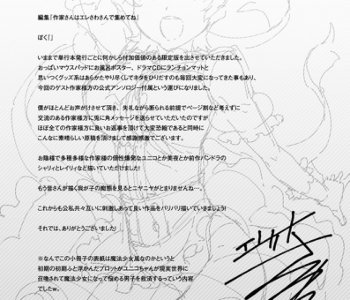 編集「作家さんはエレさわさんで集めてね」
ぼく「」
いままで単行本発行ごとに何がしら付加価値のある限定版を出させていただきました。
おっぱいマウスパッドにお風呂ポスター、ドラマCDにランチョンマットと
思いつくグッズ系はあらかたやり尽くしてネタをひりだすのも毎回大変になってきた事もあり、
今回のゲスト作家様方の公式アンソロジー付属という運びになりました。
僕がほとんどお声がけさせて頂き、失礼ながら断られる前提でページ割など考えずに
交流のある作家様方に鬼に角メッセージを送らせていただいたのですが
ほぼ全ての作家様方に良いお返事を頂けて大変恐縮であると同時に
こんなに素晴らしい原稿を頂けまして感謝感激でございます。
お陰様で多種多様な作家様の個性爆発なユニコとか美夜とか前作パンドラの
シャリィとレイリィなど描いていただけました!
もう皆さんが描く我が子の痴態を見るとニヤニヤがとまりませんねー。
これからも公私共々互いに刺激しあって良い作品をバリバリ描いていきましょう!
それでは、ありがとうございました!
※なんでこの小冊子の表紙は魔法少女風なのかというと
初期の初期ふと浮かんだプロットがユニコちゃんが現実世界に
召喚されて魔法少女になって悩める男子を救済するっていう内容
でしたw。